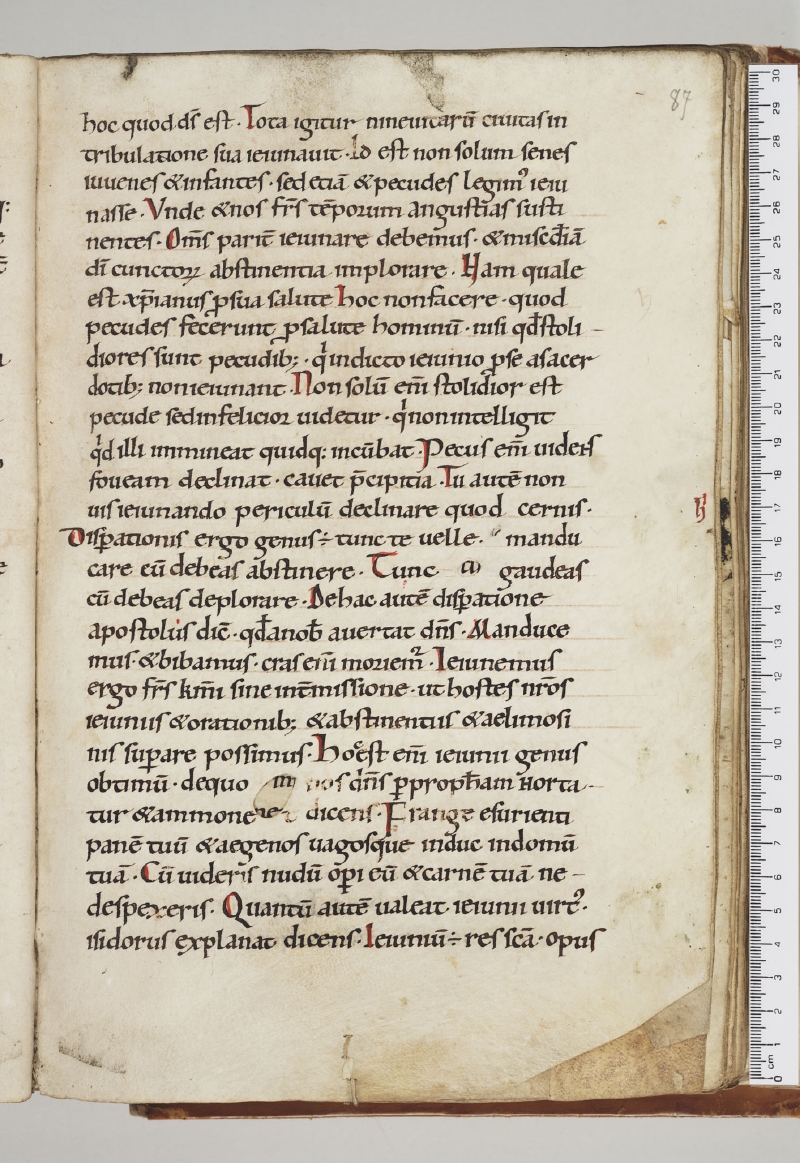 87
hoc quod dſ̄ eſt · Tota igitur nineuitarū ciuitaſ in
tribulatione ſua ieiunauit · Id eſt non ſolum ſeneſ
iuueneſ & infanteſ · ſed etiā & pecudeſ legimꝰ ieiu
naſſe · Vnde & noſ fr̄ſ tēporum anguſtiaſ ſuſti
nenteſ · Om̄ſ parit̄ ieiunare debemuſ · & miſcd̄iā
dī cunctoꝝ abſtinentia implorare · Nam quale
eſt xp̄ianuſ ꝓ ſua ſalute hoc non facere · quod
pecudeſ fecerunt ꝓ ſalute hominū · niſi qd̄ ſtoli –
dioreſ ſunt pecudibꝫ · qͥ indicto ieiunio ꝑ ſe a ſacer
dotibꝫ non ieiunant · Non ſolū em̄ ſtolidior eſt
pecude ſed infelicior uidetur · qͥ non intelligit
qͥd illi immineat quidqꝫ incūbat · Pecuſ em̄ uidenſ
foueam declinat · cauet p̄cipitia · Tu autē non
uiſ ieiunando periculū declinare quod cerniſ ·
Diſꝑationiſ ergo genuſ ÷ tunc te uelle mandu
care cū debeaſ abſtinere · Tunc gaudeaſ
cū debeaſ deplorare · De hac autē diſꝑatione
apoſtoluſ dic̄ · qd̄ a nob̄ auertat dn̄ſ · Manduce
muſ · & bibamuſ · craſ em̄ moriem̄ · Ieiunemuſ
ergo fr̄ſ km̄i ſine int̄miſſione · ut hoſteſ nr̄oſ
ieiuniiſ & orationibꝫ & abſtinentiiſ & aelimoſi
niſ ſuꝑare poſſimuſ · Hoc eſt em̄ ieiunii genuſ
obtimū · de quo noſ dn̄ſ ꝑ proph̄am horta –
tur & ammonet dicenſ · Frange eſurienti
panē tuū & aegenoſ uagoſque induc in domū
tuā · Cū uideriſ nudū oꝑi eū & carnē tuā ne –
deſpexeriſ · Quantū autē ualeat ieiunii uirt̄ ·
iſidoruſ explanat dicenſ · Ieiuniū ÷ reſ ſc̄a · opuſ